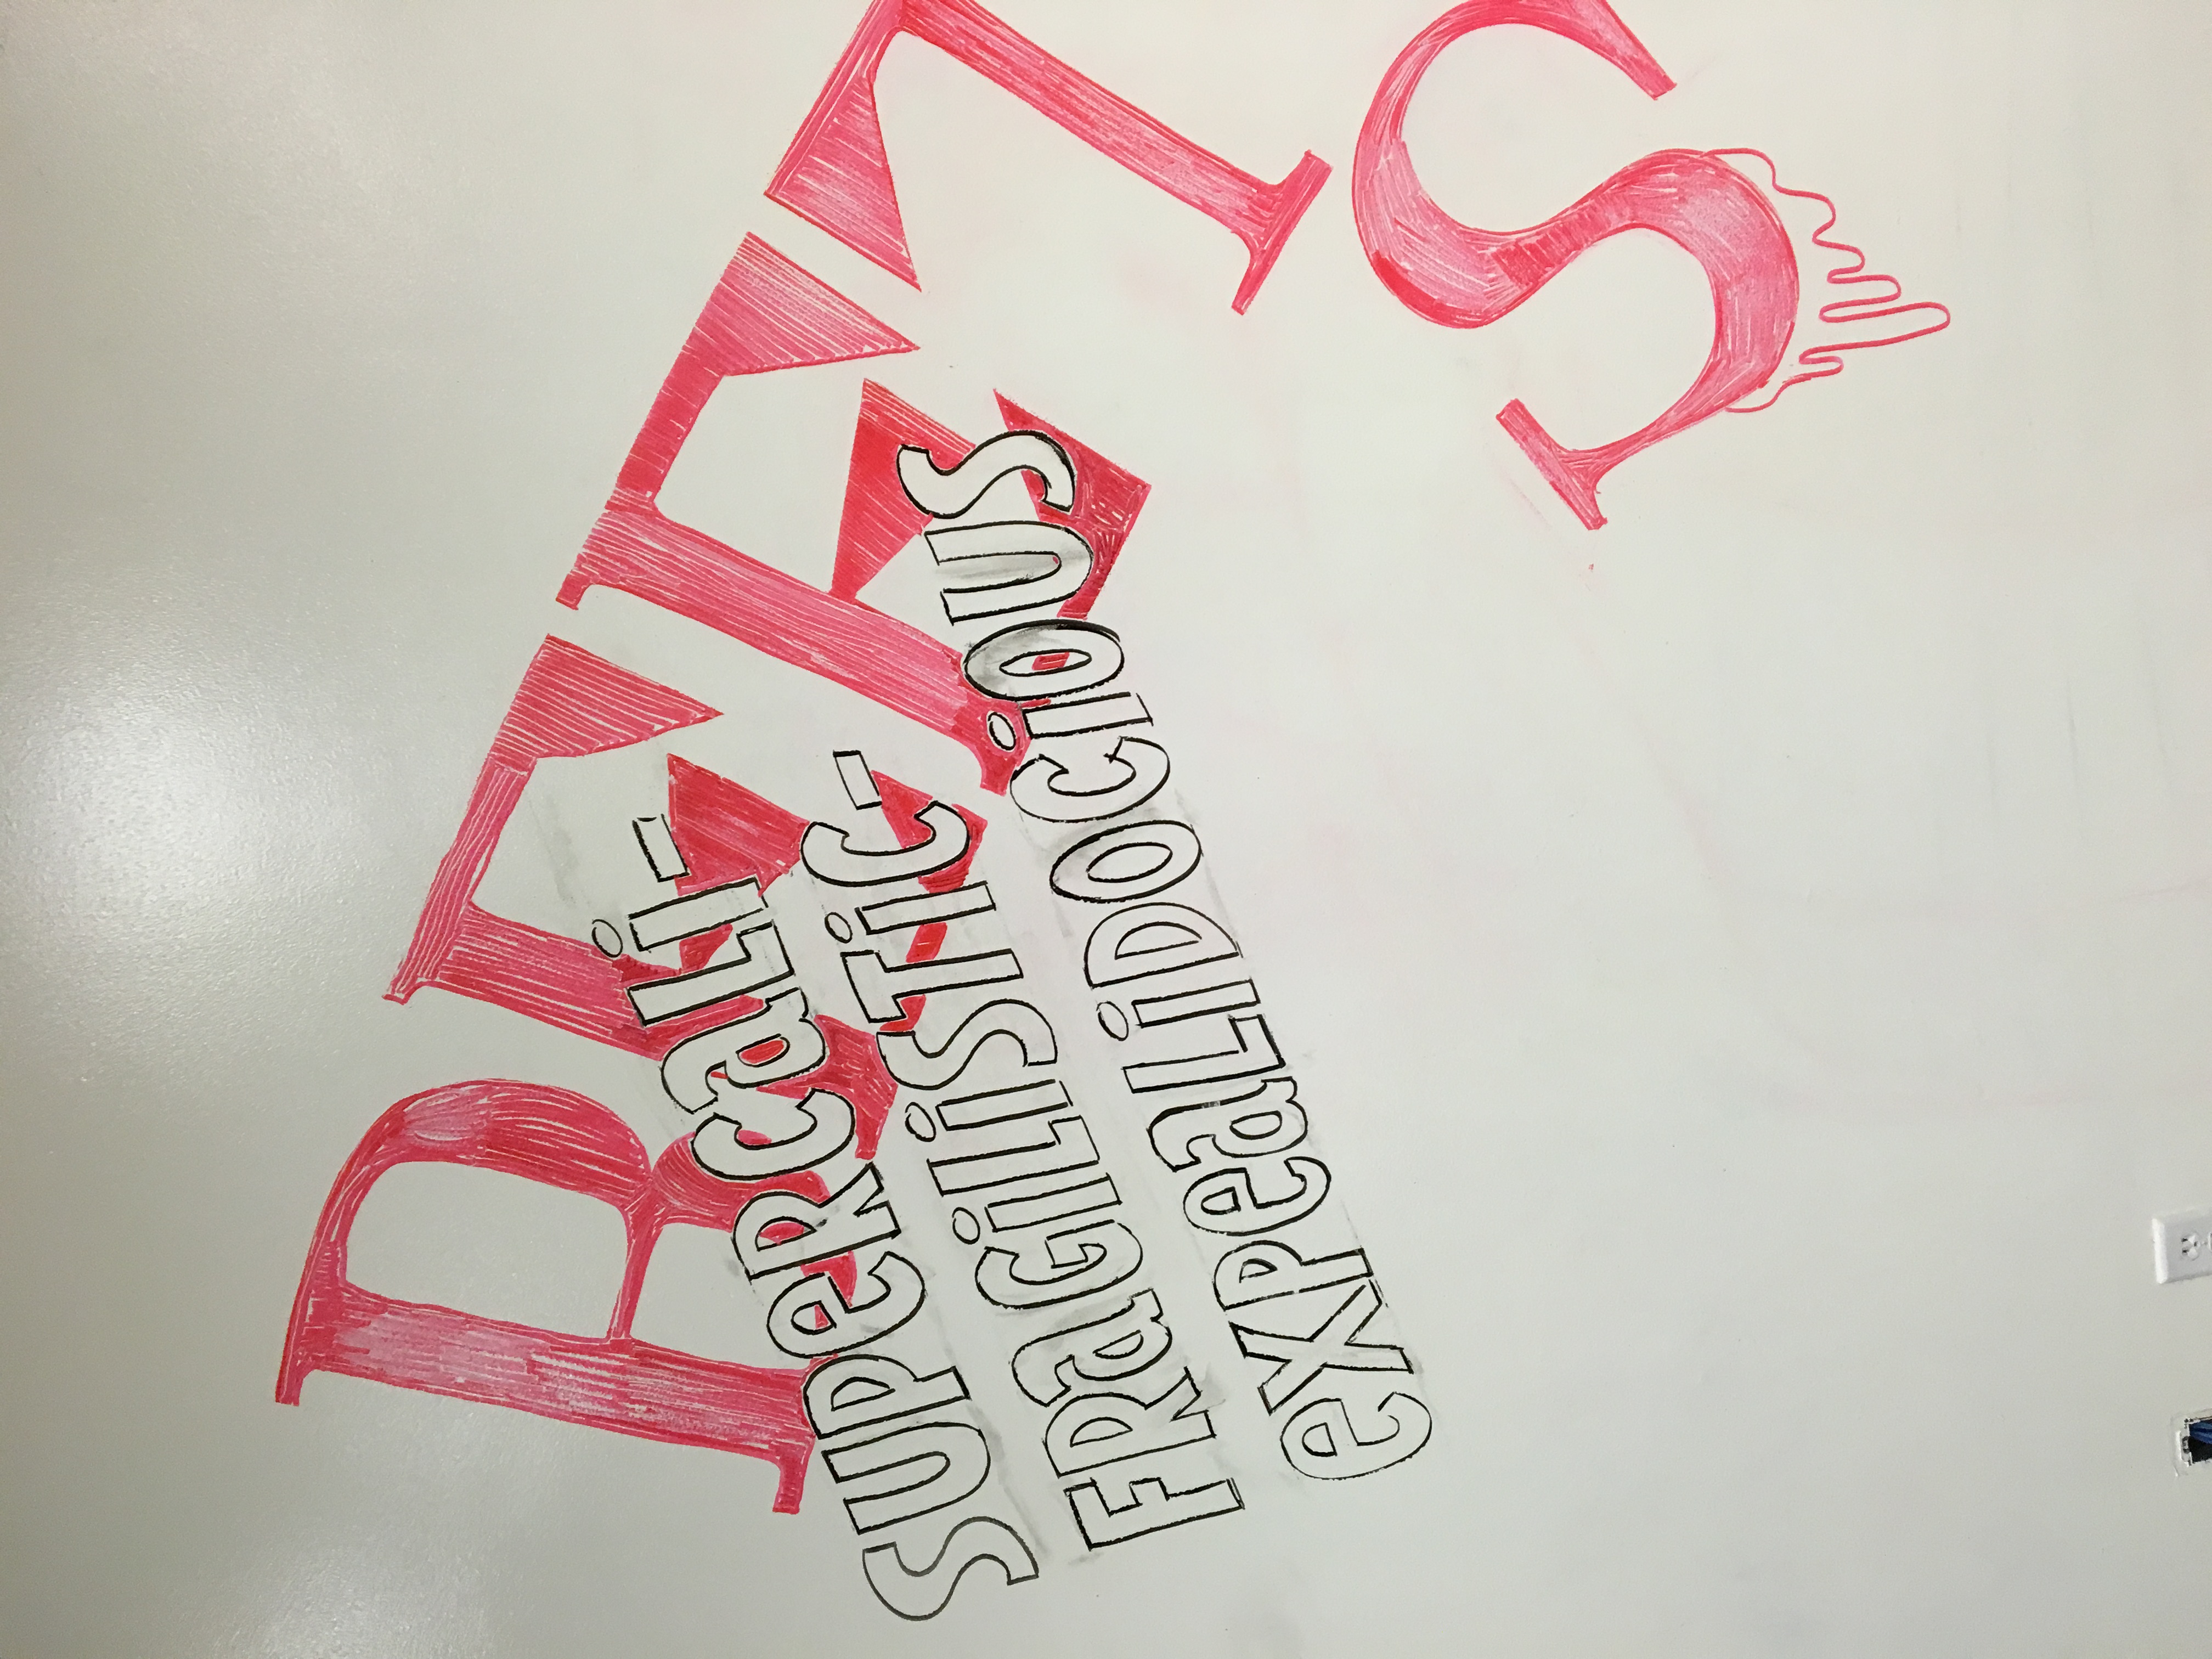 BEETS
SUPeRCaLi-
FRaGiLiSTiC-
eXPeaLiDOCiOUS